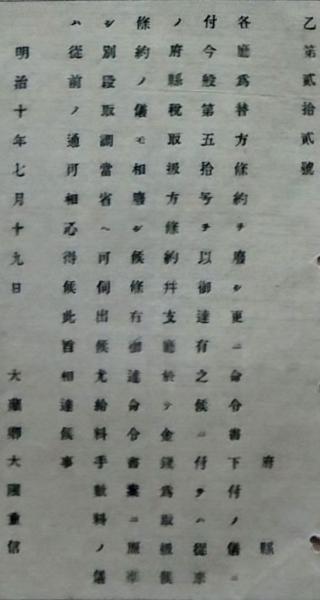 乙第貳拾貳號
府縣
各廳爲替方條約ヲ廢シ更ニ命令書下付ノ儀ニ
付今般第五拾号ヲ以御達有之候ニ付テハ從來
ノ府縣税取扱方條約幷支廳於テ金錢爲取扱候
條約ノ儀モ相廢シ候條有御達命令書案ニ照準
シ別段取調當省ヘ可伺出候尤給料手數料ノ儀
ハ從前ノ通可相心得候此旨相達候事
明治十年七月十九日
大藏卿大隈重信